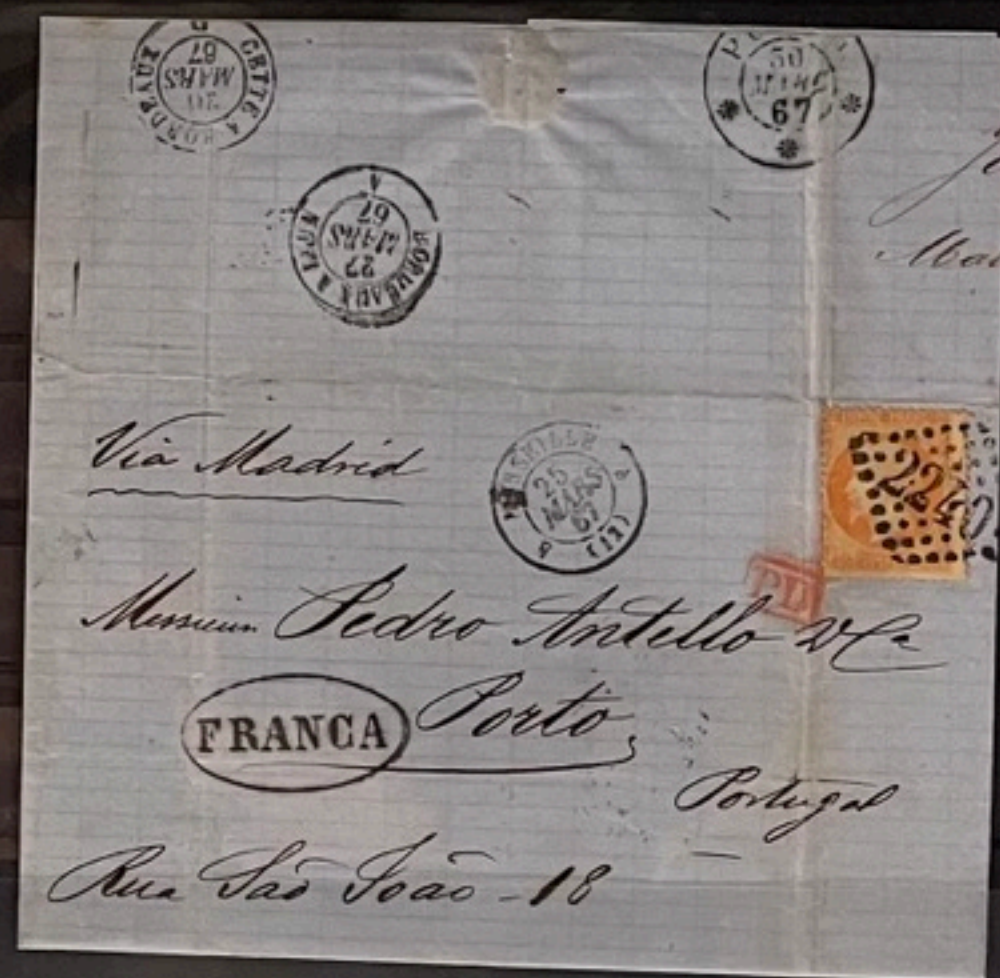 CETTE A BORDEAUX
MARS
67
BORDEAUX A IRUN
27
MARS
67
A
MARS
67
Via Madrid
MARSEILLE
25
MARS
67
(12)
2240
Messieurs Pedro Antello & Ca
FRANCA
Porto
Portugal
Rua São João - 18